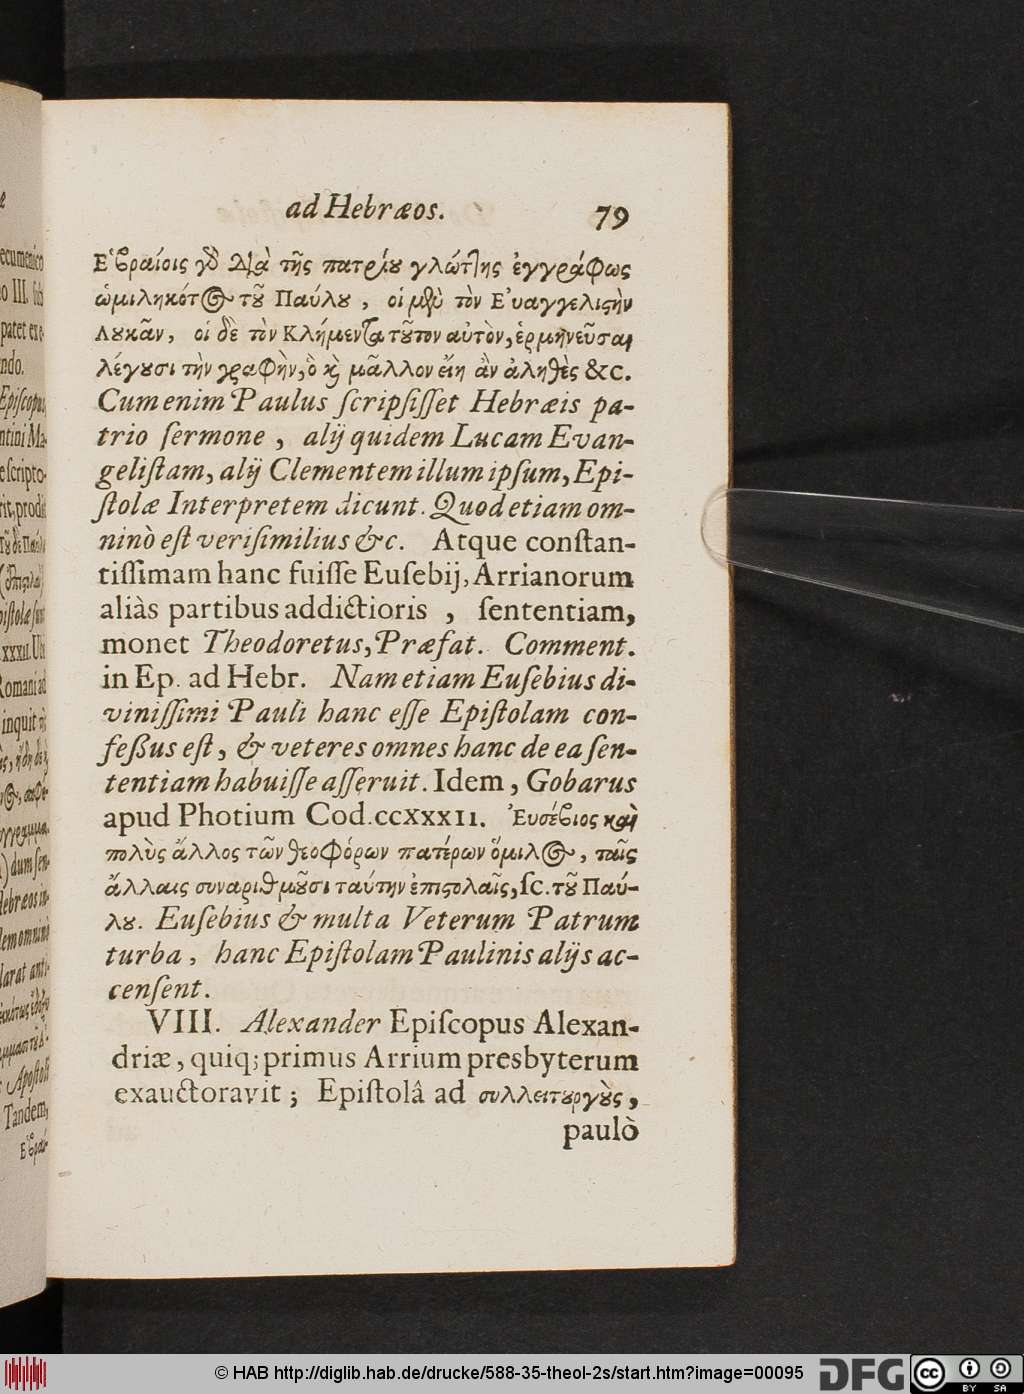 ad Hebræos. 79
Ἑβραίοις γὸ Διὰ τῆς πατρίου γλώτῆης ἐγγράφως
ὡμιληκότος τοῦ Παύλου, οἱ μὲν τὸν Εὐαγγελιϛὴν
Λουκᾶν, οἱ δὲ τὸν Κλήμεντα τοῦτον αὐτὸν, ἑρμηνεῦσαι
λέγουσι τὴν γραφὴν, ὃ καὶ μᾶλλον εἴη ἂν ἀληθὲς &c.
Cum enim Paulus ſcripſiſſet Hebræis pa-
trio ſermone , alij quidem Lucam Evan-
geliſtam, alij Clementem illum ipſum, Epi-
ſtolæ Interpretem dicunt. Quod etiam om-
ninò eſt veriſimilius &c. Atque conſtan-
tiſſimam hanc fuiſſe Euſebij, Arrianorum
aliàs partibus addictioris , ſententiam,
monet Theodoretus, Præfat. Comment.
in Ep. ad Hebr. Nam etiam Euſebius di-
viniſſimi Pauli hanc eſſe Epiſtolam con-
feßus eſt, & veteres omnes hanc de ea ſen-
tentiam habuiſſe aſſeruit. Idem, Gobarus
apud Photium Cod. ccxxxii. Ἐυσέβιος καὶ
πολὺς ἄλλος τῶν θεοφόρων πατέρων ὅμιλος, ταῖς
ἄλλαις συναριθμοῦσι ταύτην ἐπιϛολαῖς, ſc. τοῦ Παύ-
λου. Euſebius & multa Veterum Patrum
turba, hanc Epiſtolam Paulinis alijs ac-
cenſent.
VIII. Alexander Epiſcopus Alexan-
driæ, quiq; primus Arrium presbyterum
exauctoravit ; Epiſtolâ ad συλλειτουργοὺς,
paulò
© HAB http://diglib.hab.de/drucke/588-35-theol-2s/start.htm?image=00095
DFG cc BY SA